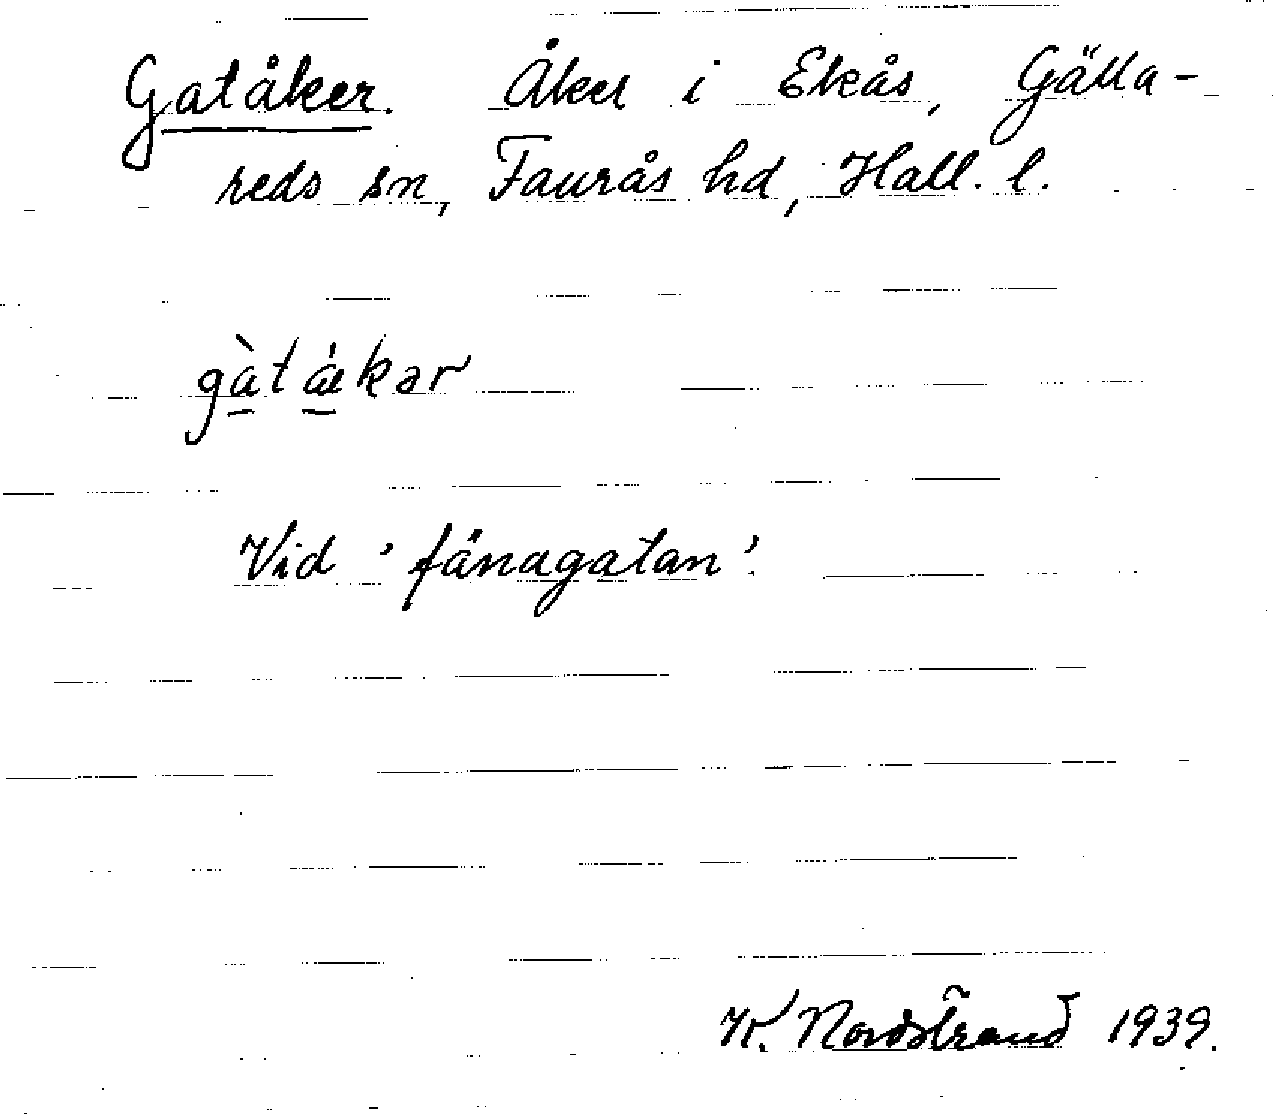 Gatåker. Åker i Ekås, Gälla-
reds sn, Faurås hd, Hall. l.
gàtåkər
Vid 'fänagatan'.
K. Nordstrand 1939.